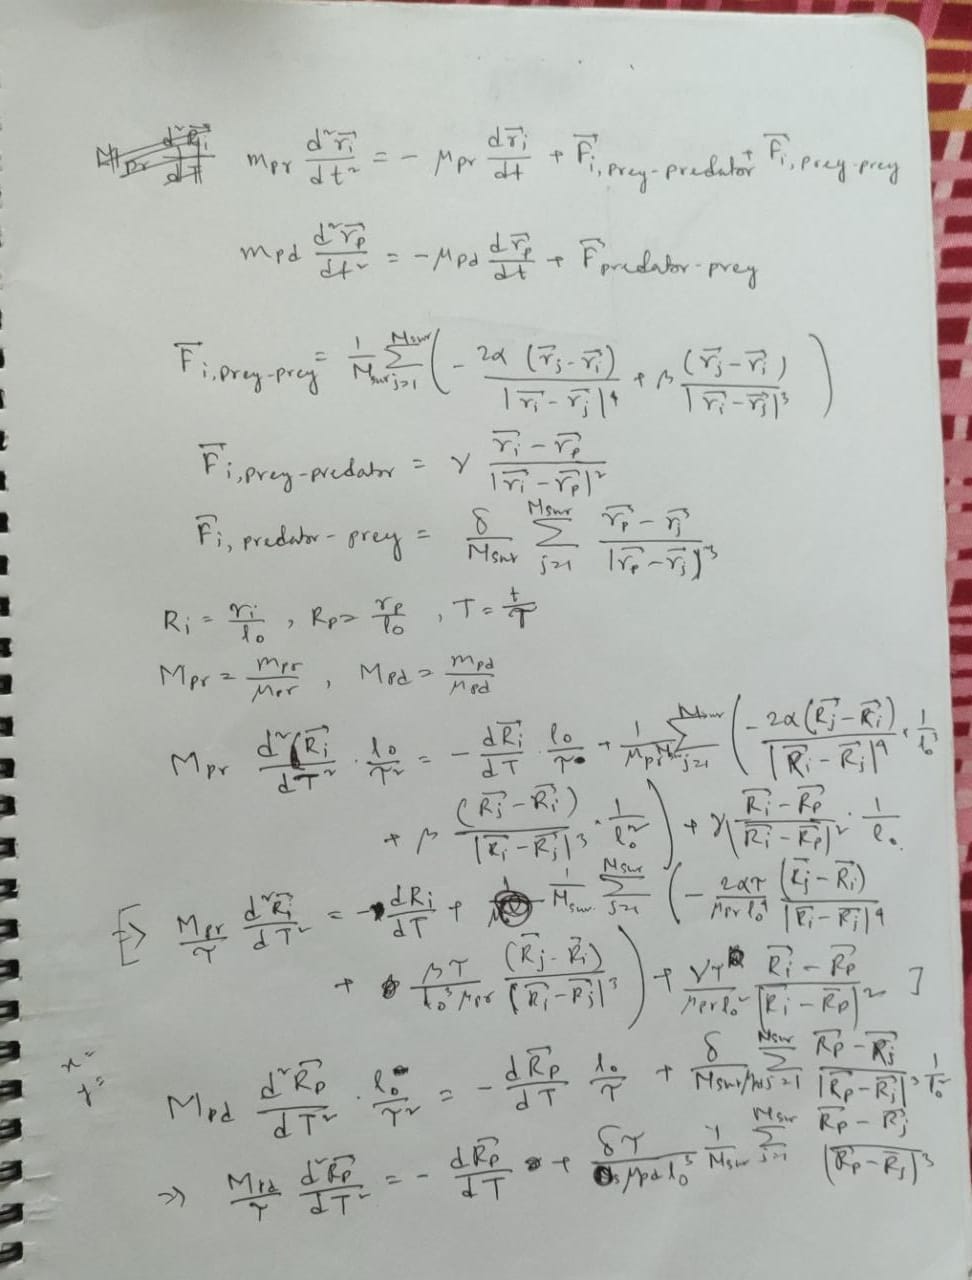 m_pr d²r⃗_i/dt² = - μ_pr dr⃗_i/dt + F⃗_i,prey-predator + F⃗_i,prey-prey
m_pd d²r⃗_p/dt² = - μ_pd dr⃗_p/dt + F⃗_predator-prey
F⃗_i,prey-prey = 1/N_sur Σ_{j=1}^{N_sur} ( - 2α (r⃗_j - r⃗_i)/|r⃗_i - r⃗_j|⁴ + β (r⃗_j - r⃗_i)/|r⃗_i - r⃗_j|³ )
F⃗_i,prey-predator = γ (r⃗_i - r⃗_p)/|r⃗_i - r⃗_p|²
F⃗_i,predator-prey = δ/N_sur Σ_{j=1}^{N_sur} (r⃗_p - r⃗_j)/|r⃗_p - r⃗_j|³
R_i = r_i/l₀ , R_p = r_p/l₀ , T = t/τ
M_pr = m_pr/μ_pr , M_pd = m_pd/μ_pd
M_pr d²R⃗_i/dT² · l₀/τ² = - dR⃗_i/dT · l₀/τ + 1/(μ_pr N_sur) Σ_{j=1}^{N_sur} ( - 2α(R⃗_j - R⃗_i)/|R⃗_i - R⃗_j|⁴ · 1/l₀³
+ β (R⃗_j - R⃗_i)/|R⃗_i - R⃗_j|³ · 1/l₀² ) + γ (R⃗_i - R⃗_p)/|R⃗_i - R⃗_p|² · 1/l₀
[⇒ M_pr/τ d²R⃗_i/dT² = - dR⃗_i/dT + 1/N_sur Σ_{j=1}^{N_sur} ( - 2ατ/(μ_pr l₀⁴) (R⃗_j - R⃗_i)/|R⃗_i - R⃗_j|⁴
+ βτ/(l₀³ μ_pr) (R⃗_j - R⃗_i)/|R⃗_i - R⃗_j|³ ) + γτ/(μ_pr l₀²) (R⃗_i - R⃗_p)/|R⃗_i - R⃗_p|² ]
M_pd d²R⃗_p/dT² · l₀/τ² = - dR⃗_p/dT l₀/τ + δ/(N_sur μ_pd) Σ_{j=1}^{N_sur} (R⃗_p - R⃗_j)/|R⃗_p - R⃗_j|³ · 1/l₀²
⇒ M_pd/τ d²R⃗_p/dT² = - dR⃗_p/dT + δτ/(μ_pd l₀³) 1/N_sur Σ_{j=1}^{N_sur} (R⃗_p - R⃗_j)/|R⃗_p - R⃗_j|³